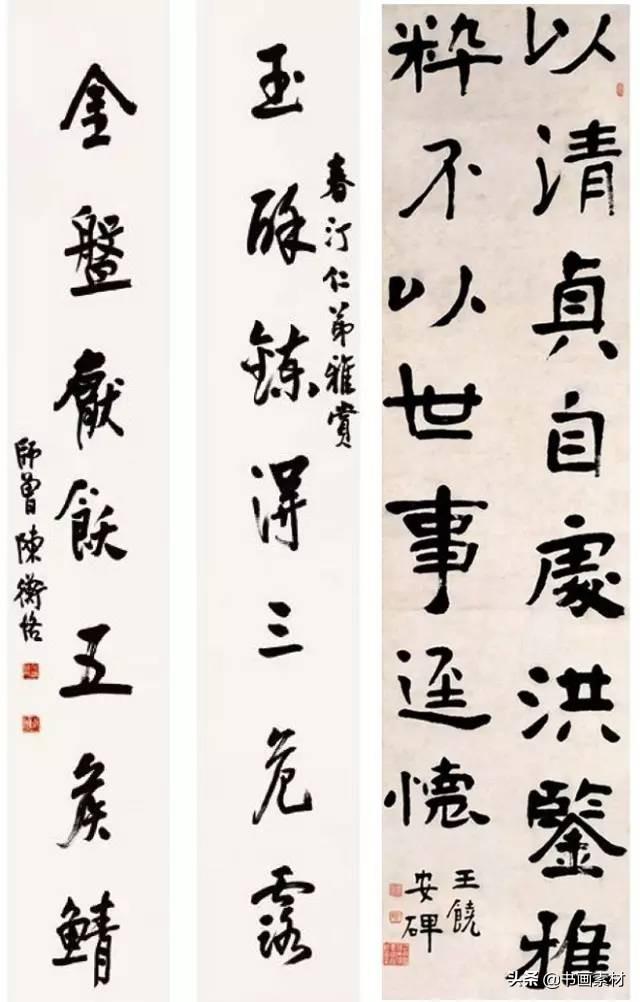 以清貞自處洪鑒雅
粹不以世事逕懷
王饒
安碑
春汀仁弟雅賞
玉酥鍊得三危露
金盤獻飫五矦鯖
師曾陳衡恪
头条 @书画素材